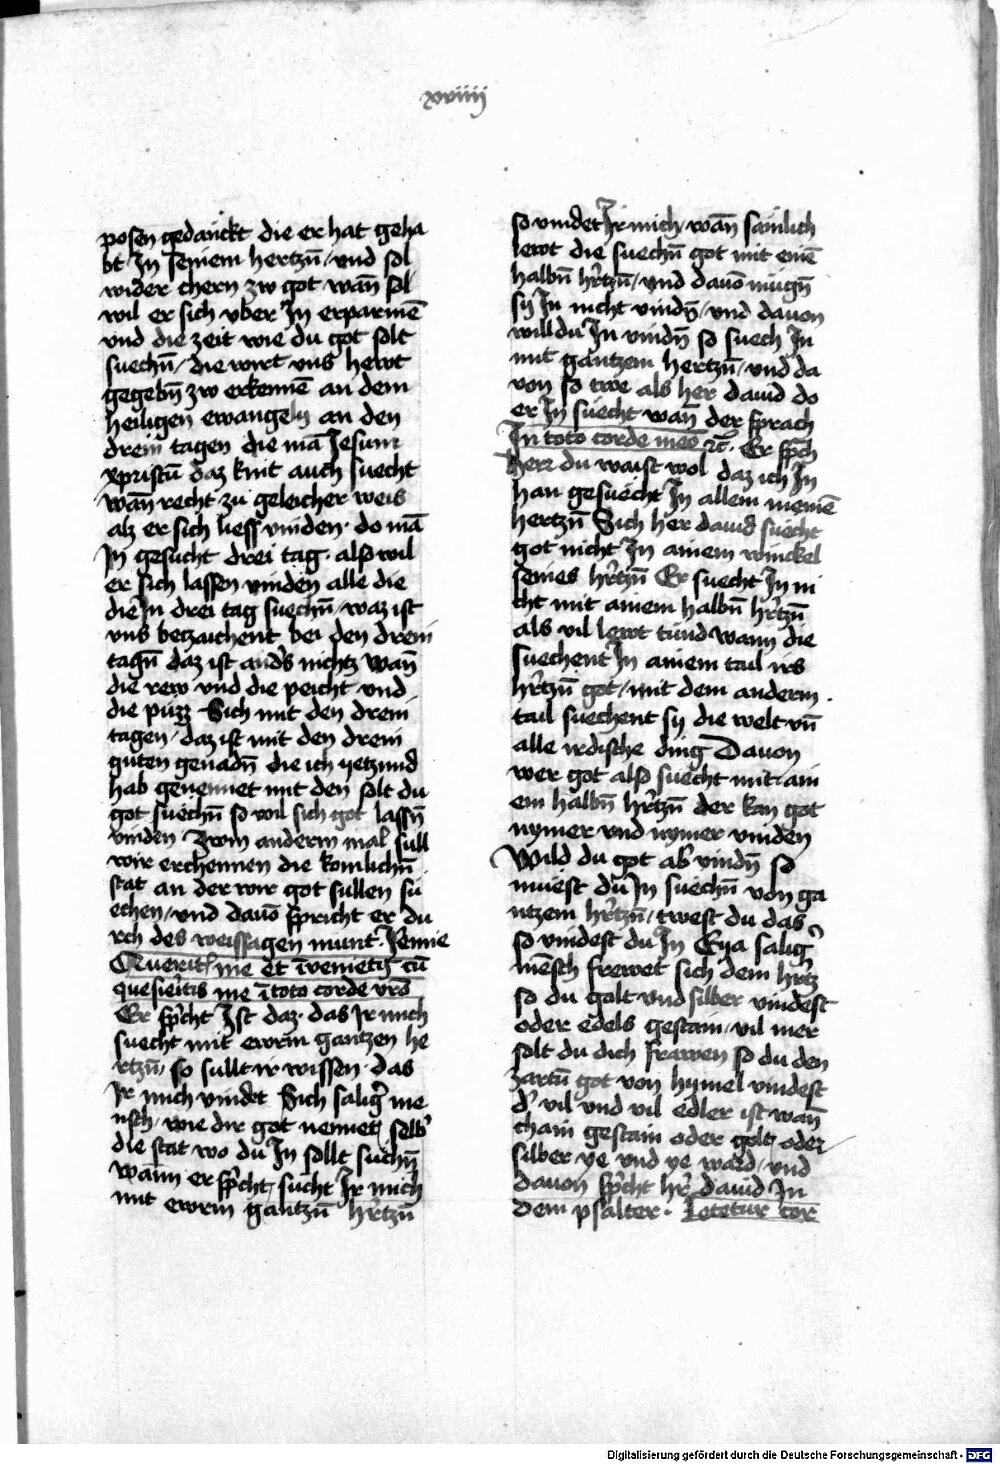 xviiij
posen gedanckt die er hat geha
bt Jn seinem hertzn̄ / vnd sol
wider chern zw got wan̄ sol
wil er sich vber Jn erparmē
vnd die zeit wie du got solt
suechn̄ / die wirt vns hewt
gegebn̄ zw erkennē an dem
heiligen ewangely an den
drein tagen die mā Jesum
xpristū daz kint auch suecht
wan̄ recht zu geleicher weis
alz er sich liess vinden · do mā
Jn gesucht drei tag · also wil
er sich lassen vinden alle die
die Jn drei tag suechn̄ / waz ist
vns betzaichent bei den drein
tagn̄ daz ist anders nichtz wan̄
die rew vnd die peicht vnd
die puzz Sich mit den drein
tagen / daz ist mit den drein
guten genadn̄ die ich yetzund
hab genennet mit den solt du
got suechn̄ so wil sich got lassn̄
vinden Zwm anderm mal sull
wir erchennen die komlichn̄
stat an der wir got sullen su
echen / vnd dauō spricht er du
rch des weissagen munt · Jemie
Querit me et īvenietis cū
quesieritis me ī toto corde vro
Er sp̄cht Jst daz · das Jr mich
suecht mit ewrm gantzen he
rtzn̄ / so sullt ir wissen · das
Jr mich vindet Sich salig' me
nsch / wie dir got nennet selb'
die stat wo du Jn sollt suchn̄
wann er sp̄cht / sucht Jr mich
mit ewrm gantzn̄ hrtzn̄
so vindet Jr mich / wan̄ sämlich
lewt die suechn̄ got mit einē
halbn̄ hrtzn̄ / vnd dauō mügn̄
sy Jn nicht vindn̄ / vnd dauon
will du Jn vindn̄ so suech Jn
mit gantzem hertzn̄ / vnd da
von so twe als her dauid do
er Jn suecht wan̄ der sprach
Jn toto corde meo ꝛc̄ · Er sp̄ch
herr du waist wol daz ich Jn
han gesuecht Jn allem meinē
hertzn̄ Sich her dauid suecht
got nicht Jn ainem winckel
seines hrtzn̄ Er suecht Jn ni
cht mit ainem halbn̄ hrtzn̄
als vil lewt tünd wann die
suechent Jn ainem tail irs
hrtzn̄ got / mit dem anderm ·
tail suechent sy die welt vn̄
alle irdische ding Dauon
wer got also suecht mit ain
em halbn̄ hrtzn̄ der kan got
nymer vnd nymer vinden
Wild du got ab' vindn̄ so
muest du Jn suechn̄ von ga
ntzem hrtzn̄ / twest du das
so vindest du Jn Eya salig'
mēsch frewet sich dem hrtz
so du golt vnd silber vindest
oder edels gestain / vil mer
solt du dich frawen so du den
zartn̄ got von hymel vindest
d' vil vnd vil edler ist wan̄
chain gestain oder golt / oder
silber ye vnd ye ward / vnd
dauon sp̄cht hr dauid Jn
dem psalter · Letetur cor
Digitalisierung gefördert durch die Deutsche Forschungsgemeinschaft - DFG